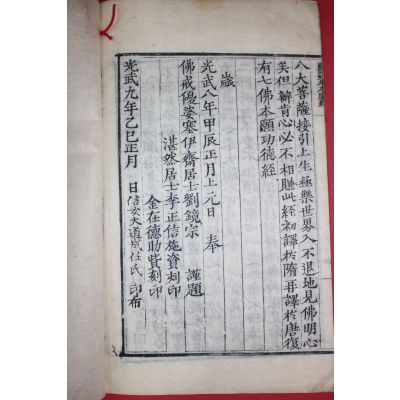 八大菩薩接引上生極樂世界入不退地見佛明心
矣但辦肯心必不相賺此經初譯於隋再譯於唐復
有七佛本願功德經
歲
光武八年甲辰正月上元日 奉
佛戒優婆塞伊齋居士劉鏡宗 謹題
湛然居士李正信施資刻印
金在德助貲刻印
光武九年乙巳正月 日信女大道成任氏 印布